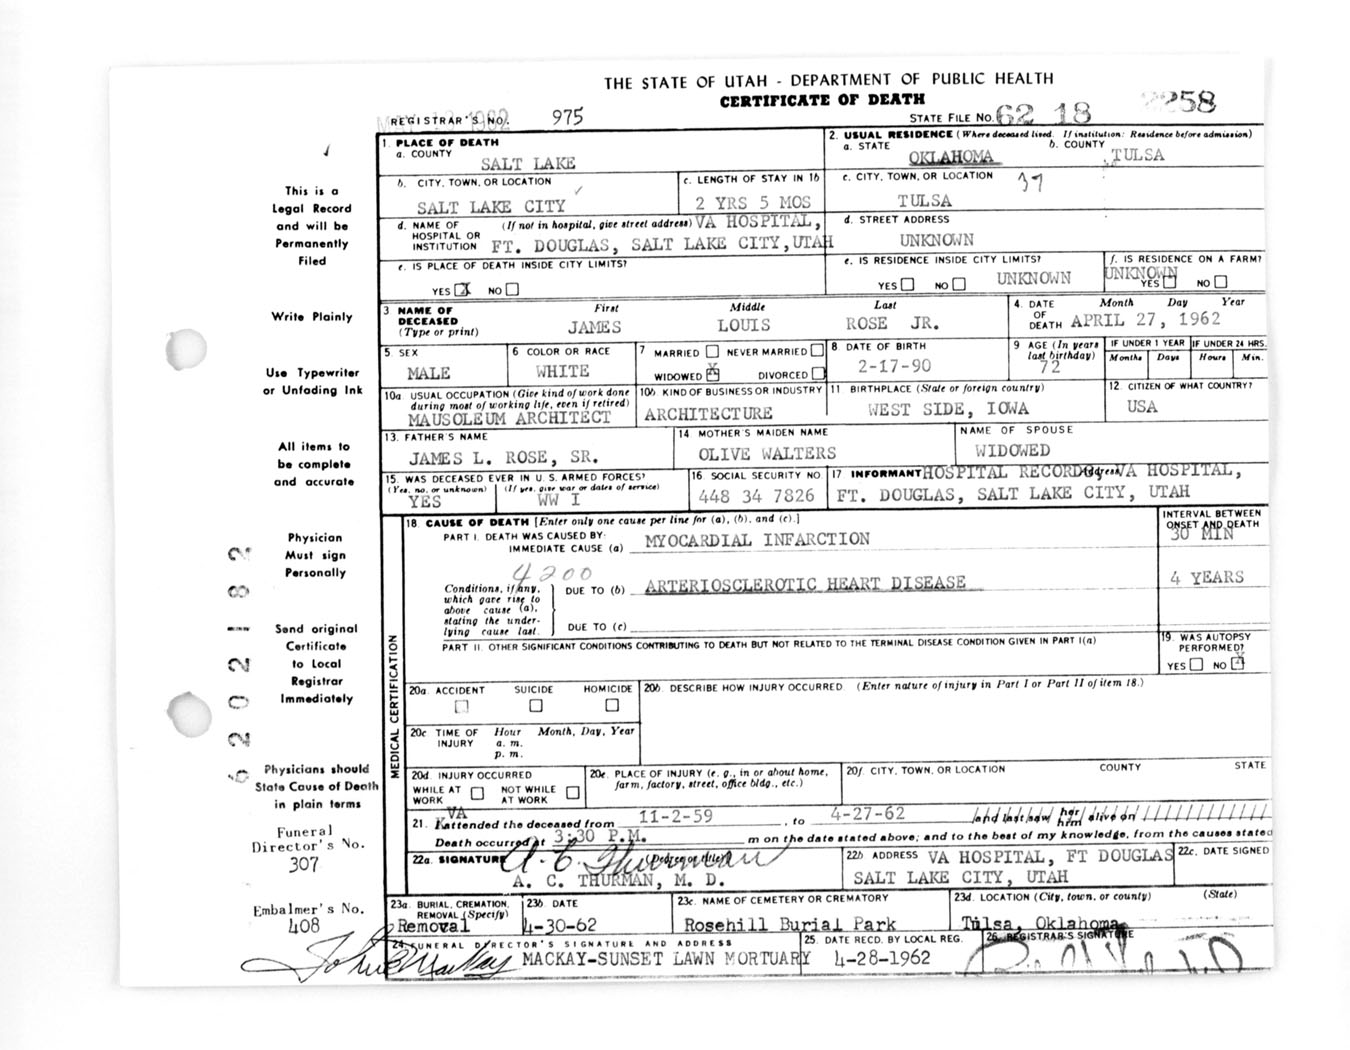 THE STATE OF UTAH - DEPARTMENT OF PUBLIC HEALTH
CERTIFICATE OF DEATH
REGISTRAR'S NO. 975
STATE FILE NO. 62 18 2258
1. PLACE OF DEATH
a. COUNTY
SALT LAKE
2. USUAL RESIDENCE (Where deceased lived. If institution: Residence before admission)
a. STATE OKLAHOMA b. COUNTY TULSA
b. CITY, TOWN, OR LOCATION
SALT LAKE CITY
c. LENGTH OF STAY IN 1b
2 YRS 5 MOS
c. CITY, TOWN, OR LOCATION 37
TULSA
d. NAME OF HOSPITAL OR INSTITUTION (If not in hospital, give street address) VA HOSPITAL,
FT. DOUGLAS, SALT LAKE CITY, UTAH
d. STREET ADDRESS
UNKNOWN
e. IS PLACE OF DEATH INSIDE CITY LIMITS?
YES X NO
e. IS RESIDENCE INSIDE CITY LIMITS?
YES NO UNKNOWN
f. IS RESIDENCE ON A FARM?
UNKNOWN
YES NO
3 NAME OF DECEASED (Type or print)
First Middle Last
JAMES LOUIS ROSE JR.
4. DATE OF DEATH Month Day Year
APRIL 27, 1962
5. SEX
MALE
6 COLOR OR RACE
WHITE
7 MARRIED NEVER MARRIED
WIDOWED X DIVORCED
8 DATE OF BIRTH
2-17-90
9 AGE (In years last birthday)
72
IF UNDER 1 YEAR
Months Days
IF UNDER 24 HRS.
Hours Min.
10a. USUAL OCCUPATION (Give kind of work done during most of working life, even if retired)
MAUSOLEUM ARCHITECT
10b KIND OF BUSINESS OR INDUSTRY
ARCHITECTURE
11 BIRTHPLACE (State or foreign country)
WEST SIDE, IOWA
12. CITIZEN OF WHAT COUNTRY?
USA
13. FATHER'S NAME
JAMES L. ROSE, SR.
14 MOTHER'S MAIDEN NAME
OLIVE WALTERS
NAME OF SPOUSE
WIDOWED
15. WAS DECEASED EVER IN U. S. ARMED FORCES?
(Yes, no, or unknown) (If yes, give war or dates of service)
YES WW I
16 SOCIAL SECURITY NO.
448 34 7826
17 INFORMANT HOSPITAL RECORDS Address VA HOSPITAL,
FT. DOUGLAS, SALT LAKE CITY, UTAH
MEDICAL CERTIFICATION
18. CAUSE OF DEATH [Enter only one cause per line for (a), (b), and (c).]
PART I. DEATH WAS CAUSED BY:
IMMEDIATE CAUSE (a) MYOCARDIAL INFARCTION
INTERVAL BETWEEN ONSET AND DEATH
30 MIN
4200
Conditions, if any, which gave rise to above cause (a), stating the under-lying cause last.
DUE TO (b) ARTERIOSCLEROTIC HEART DISEASE
4 YEARS
DUE TO (c)
PART II. OTHER SIGNIFICANT CONDITIONS CONTRIBUTING TO DEATH BUT NOT RELATED TO THE TERMINAL DISEASE CONDITION GIVEN IN PART I(a)
19. WAS AUTOPSY PERFORMED?
YES NO X
20a. ACCIDENT SUICIDE HOMICIDE
20b. DESCRIBE HOW INJURY OCCURRED (Enter nature of injury in Part I or Part II of item 18.)
20c TIME OF INJURY Hour Month, Day, Year
a. m.
p. m.
20d. INJURY OCCURRED
WHILE AT WORK NOT WHILE AT WORK
20e. PLACE OF INJURY (e. g., in or about home, farm, factory, street, office bldg., etc.)
20f. CITY, TOWN, OR LOCATION COUNTY STATE
21. VA attended the deceased from 11-2-59, to 4-27-62 and last saw her him alive on
Death occurred at 3:30 P.M. m on the date stated above; and to the best of my knowledge, from the causes stated
22a. SIGNATURE (Degree or title)
A. C. Thurman
A. C. THURMAN, M. D.
22b ADDRESS VA HOSPITAL, FT DOUGLAS
SALT LAKE CITY, UTAH
22c. DATE SIGNED
23a. BURIAL, CREMATION, REMOVAL (Specify)
Removal
23b DATE
4-30-62
23c. NAME OF CEMETERY OR CREMATORY
Rosehill Burial Park
23d. LOCATION (City, town, or county) (State)
Tulsa, Oklahoma
24. FUNERAL DIRECTOR'S SIGNATURE AND ADDRESS
MACKAY-SUNSET LAWN MORTUARY
25. DATE RECD. BY LOCAL REG.
4-28-1962
26. REGISTRAR'S SIGNATURE
This is a
Legal Record
and will be
Permanently
Filed
Write Plainly
Use Typewriter
or Unfading Ink
All items to
be complete
and accurate
Physician
Must sign
Personally
Send original
Certificate
to Local
Registrar
Immediately
Physicians should
State Cause of Death
in plain terms
Funeral
Director's No.
307
Embalmer's No.
408